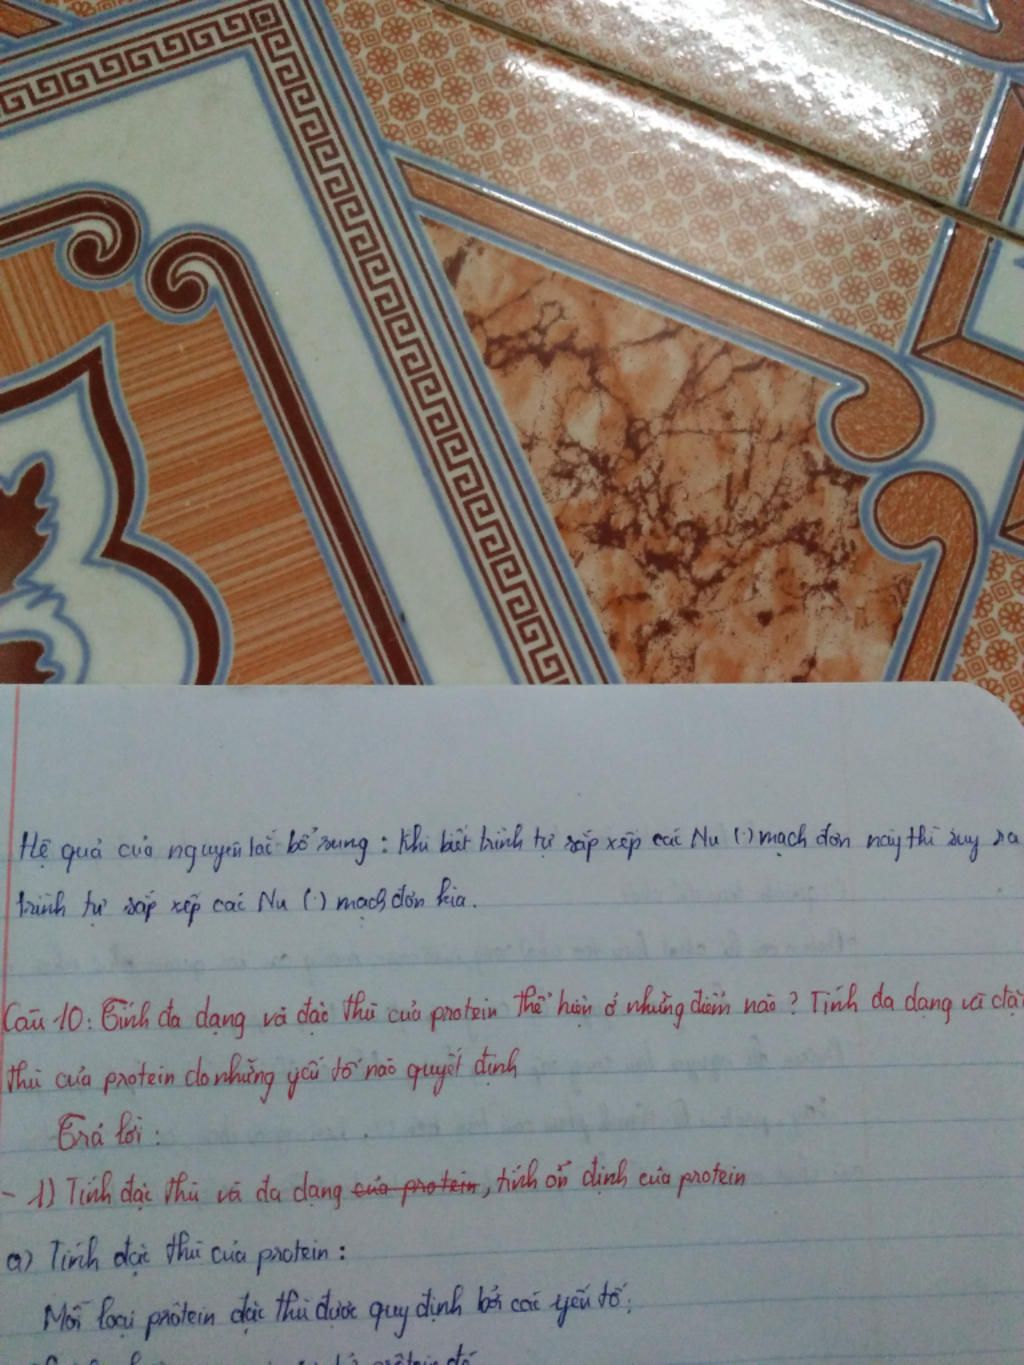 Hệ quả của nguyên tắc bổ sung : Khi biết trình tự sắp xếp các Nu (.) mạch đơn này thì suy ra
trình tự sắp xếp các Nu (.) mạch đơn kia.
Câu 10: Tính đa dạng và đặc thù của protein thể hiện ở những điểm nào ? Tính đa dạng và đặc
thù của protein do những yếu tố nào quyết định
Trả lời :
- 1) Tính đặc thù và đa dạng của protein, tính ổn định của protein
a) Tính đặc thù của protein :
Mỗi loại prôtein đặc thù được quy định bởi các yếu tố:
prôtein đó